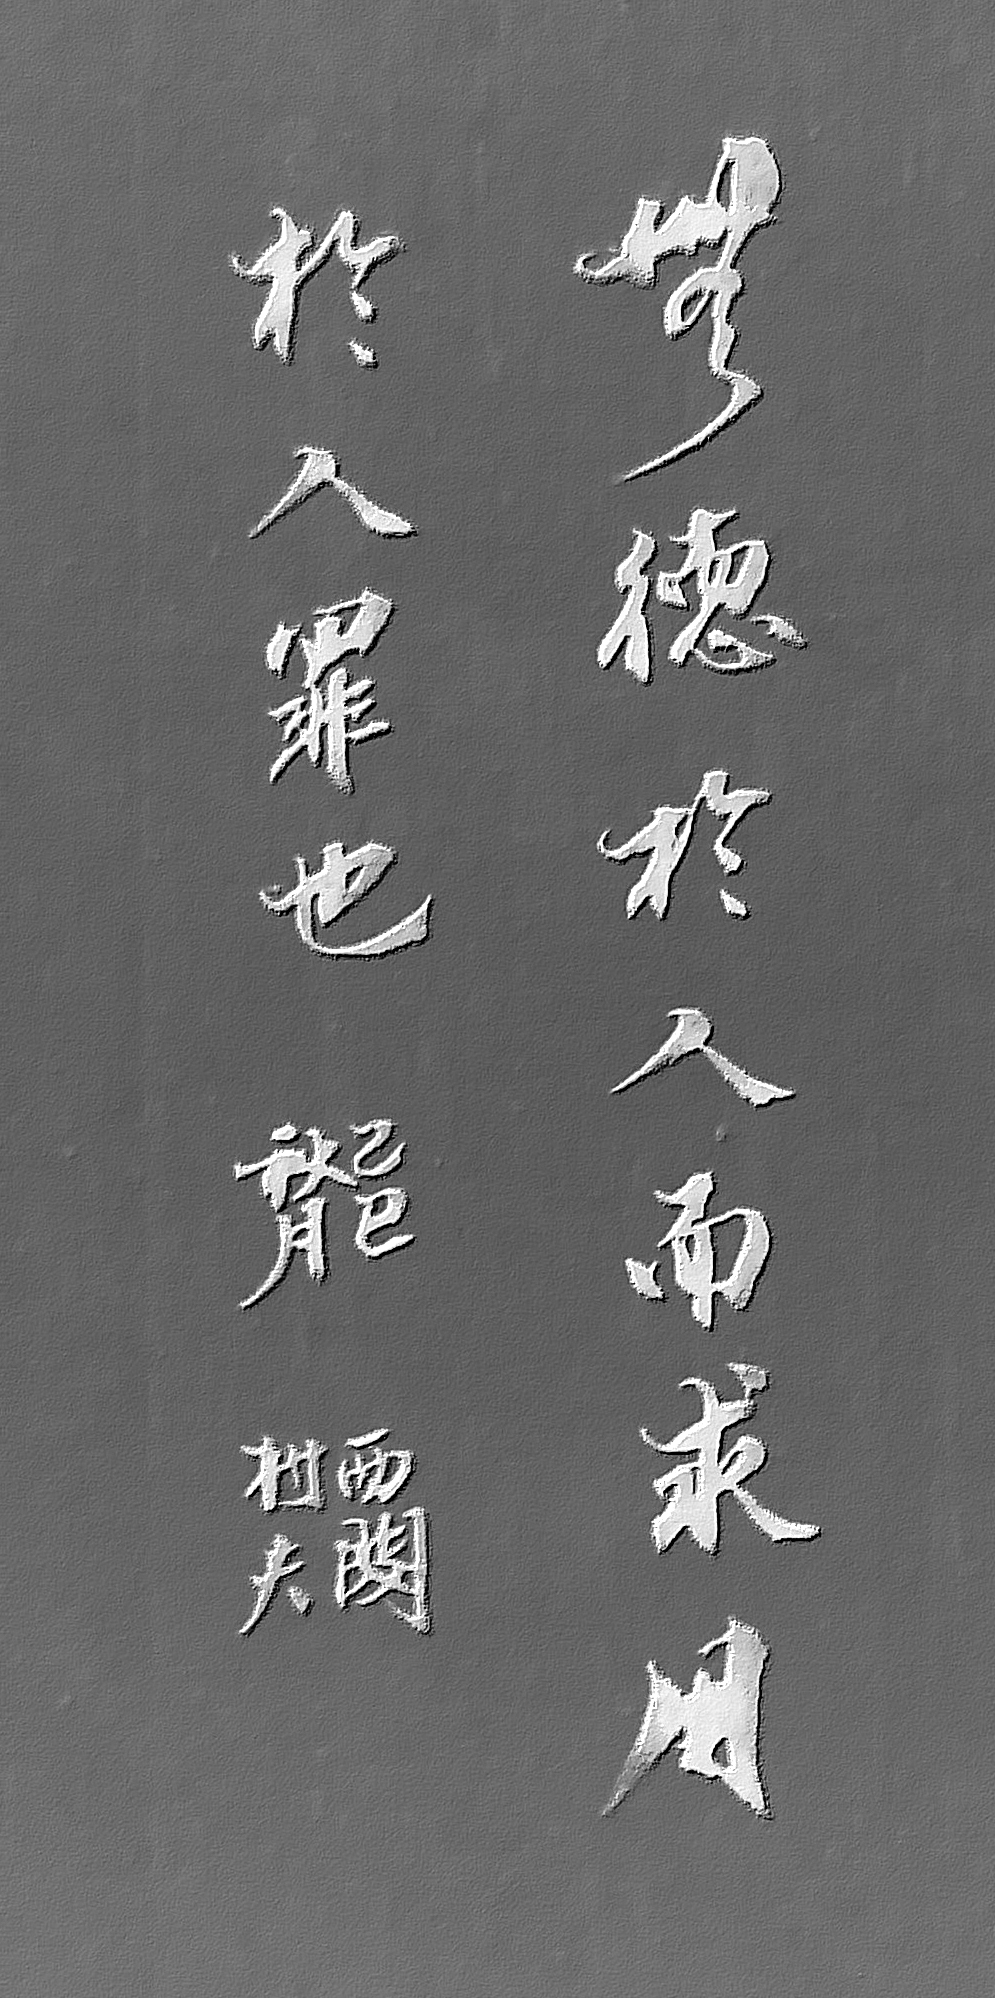 無德於人而求用
於人罪也
西関
村夫